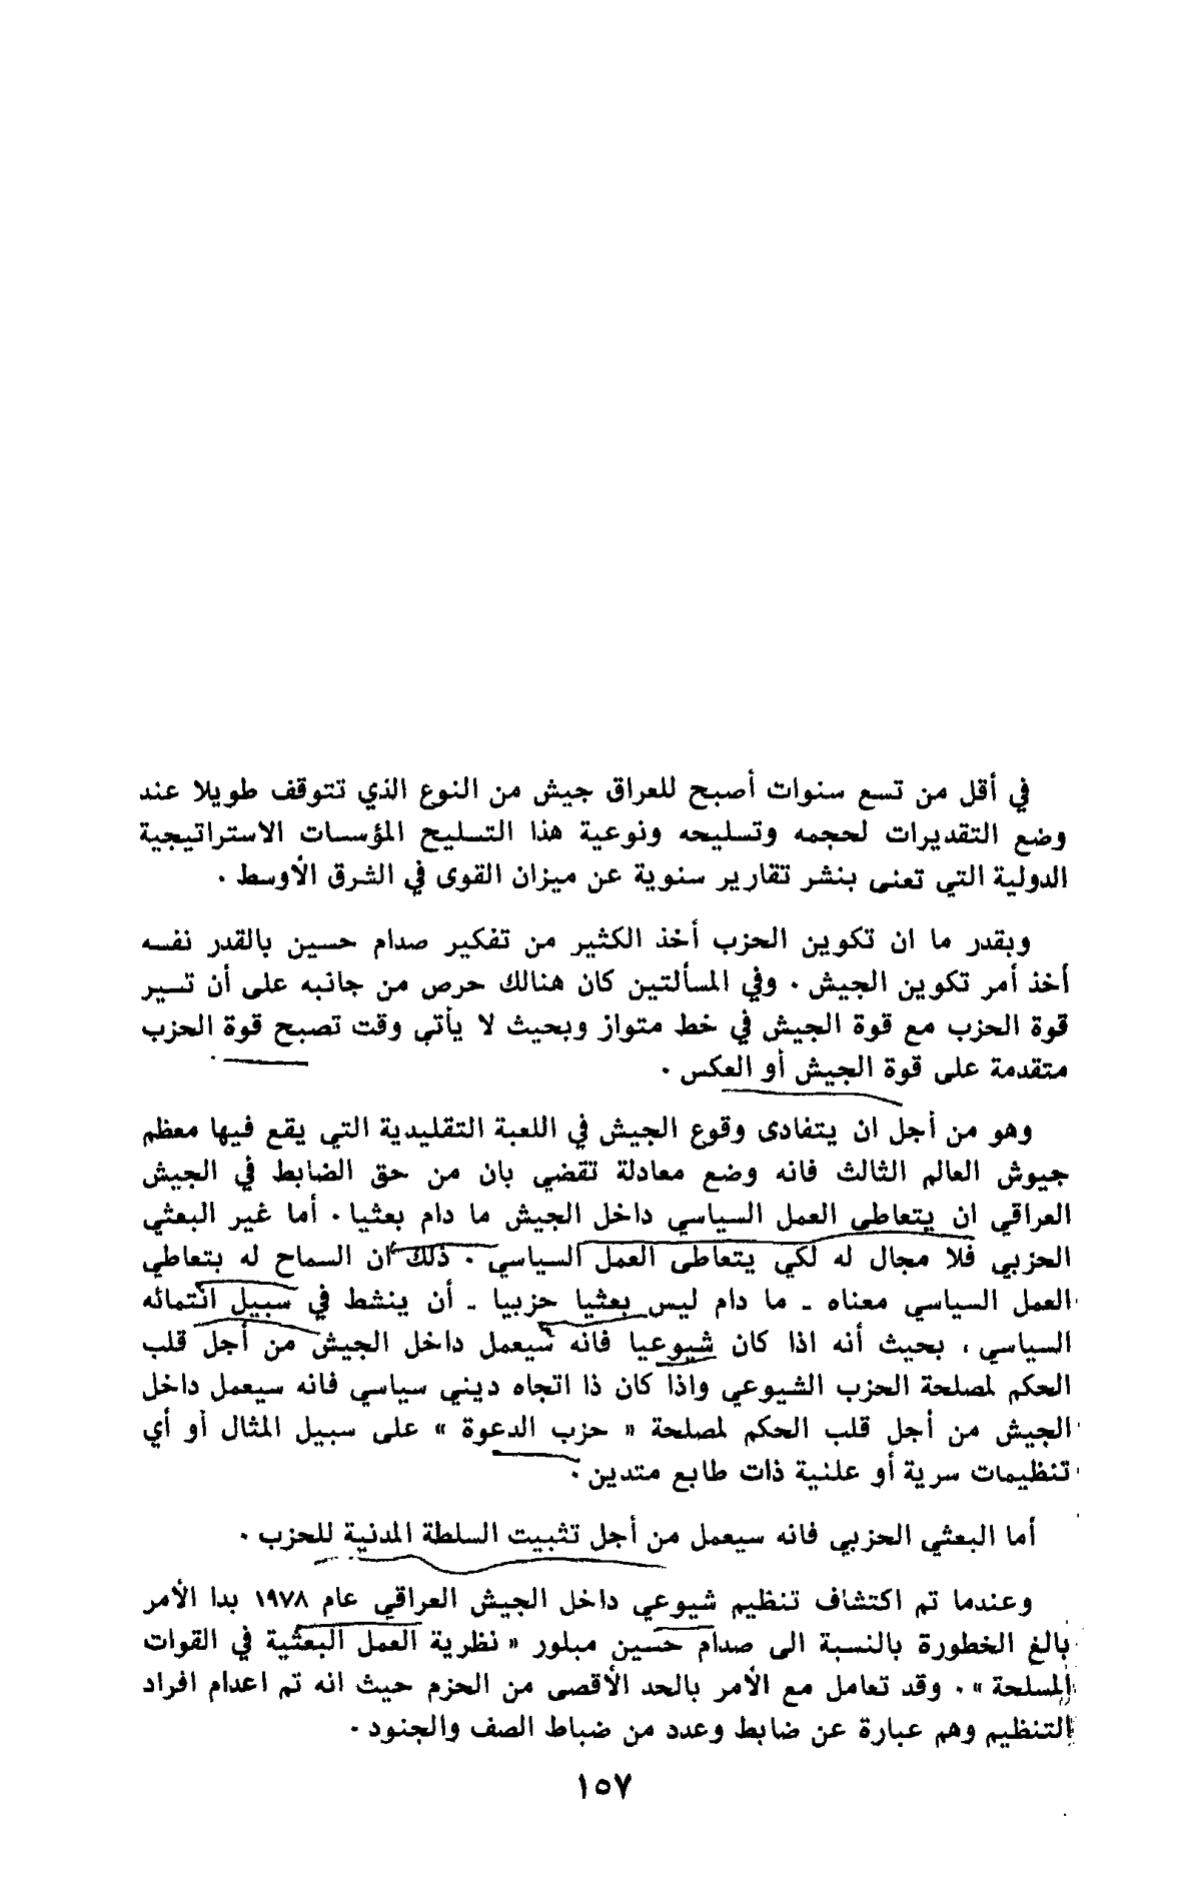 في أقل من تسع سنوات أصبح للعراق جيش من النوع الذي تتوقف طويلا عند
وضع التقديرات لحجمه وتسليحه ونوعية هذا التسليح المؤسسات الاستراتيجية
الدولية التي تعنى بنشر تقارير سنوية عن ميزان القوى في الشرق الأوسط .
وبقدر ما ان تكوين الحزب أخذ الكثير من تفكير صدام حسين بالقدر نفسه
أخذ أمر تكوين الجيش . وفي المسألتين كان هنالك حرص من جانبه على أن تسير
قوة الحزب مع قوة الجيش في خط متواز وبحيث لا يأتي وقت تصبح قوة الحزب
متقدمة على قوة الجيش أو العكس .
وهو من أجل ان يتفادى وقوع الجيش في اللعبة التقليدية التي يقع فيها معظم
جيوش العالم الثالث فانه وضع معادلة تقضي بان من حق الضابط في الجيش
العراقي ان يتعاطى العمل السياسي داخل الجيش ما دام بعثيا . أما غير البعثي
الحزبي فلا مجال له لكي يتعاطى العمل السياسي . ذلك أن السماح له بتعاطي
العمل السياسي معناه ـ ما دام ليس بعثيا حزبيا ـ أن ينشط في سبيل انتمائه
السياسي ، بحيث أنه اذا كان شيوعيا فانه سيعمل داخل الجيش من أجل قلب
الحكم لمصلحة الحزب الشيوعي واذا كان ذا اتجاه ديني سياسي فانه سيعمل داخل
الجيش من أجل قلب الحكم لمصلحة « حزب الدعوة » على سبيل المثال أو أي
تنظيمات سرية أو علنية ذات طابع متدين .
أما البعثي الحزبي فانه سيعمل من أجل تثبيت السلطة المدنية للحزب .
وعندما تم اكتشاف تنظيم شيوعي داخل الجيش العراقي عام ١٩٧٨ بدا الأمر
بالغ الخطورة بالنسبة الى صدام حسين مبلور « نظرية العمل البعثية في القوات
المسلحة » . وقد تعامل مع الأمر بالحد الأقصى من الحزم حيث انه تم اعدام افراد
التنظيم وهم عبارة عن ضابط وعدد من ضباط الصف والجنود .
١٥٧